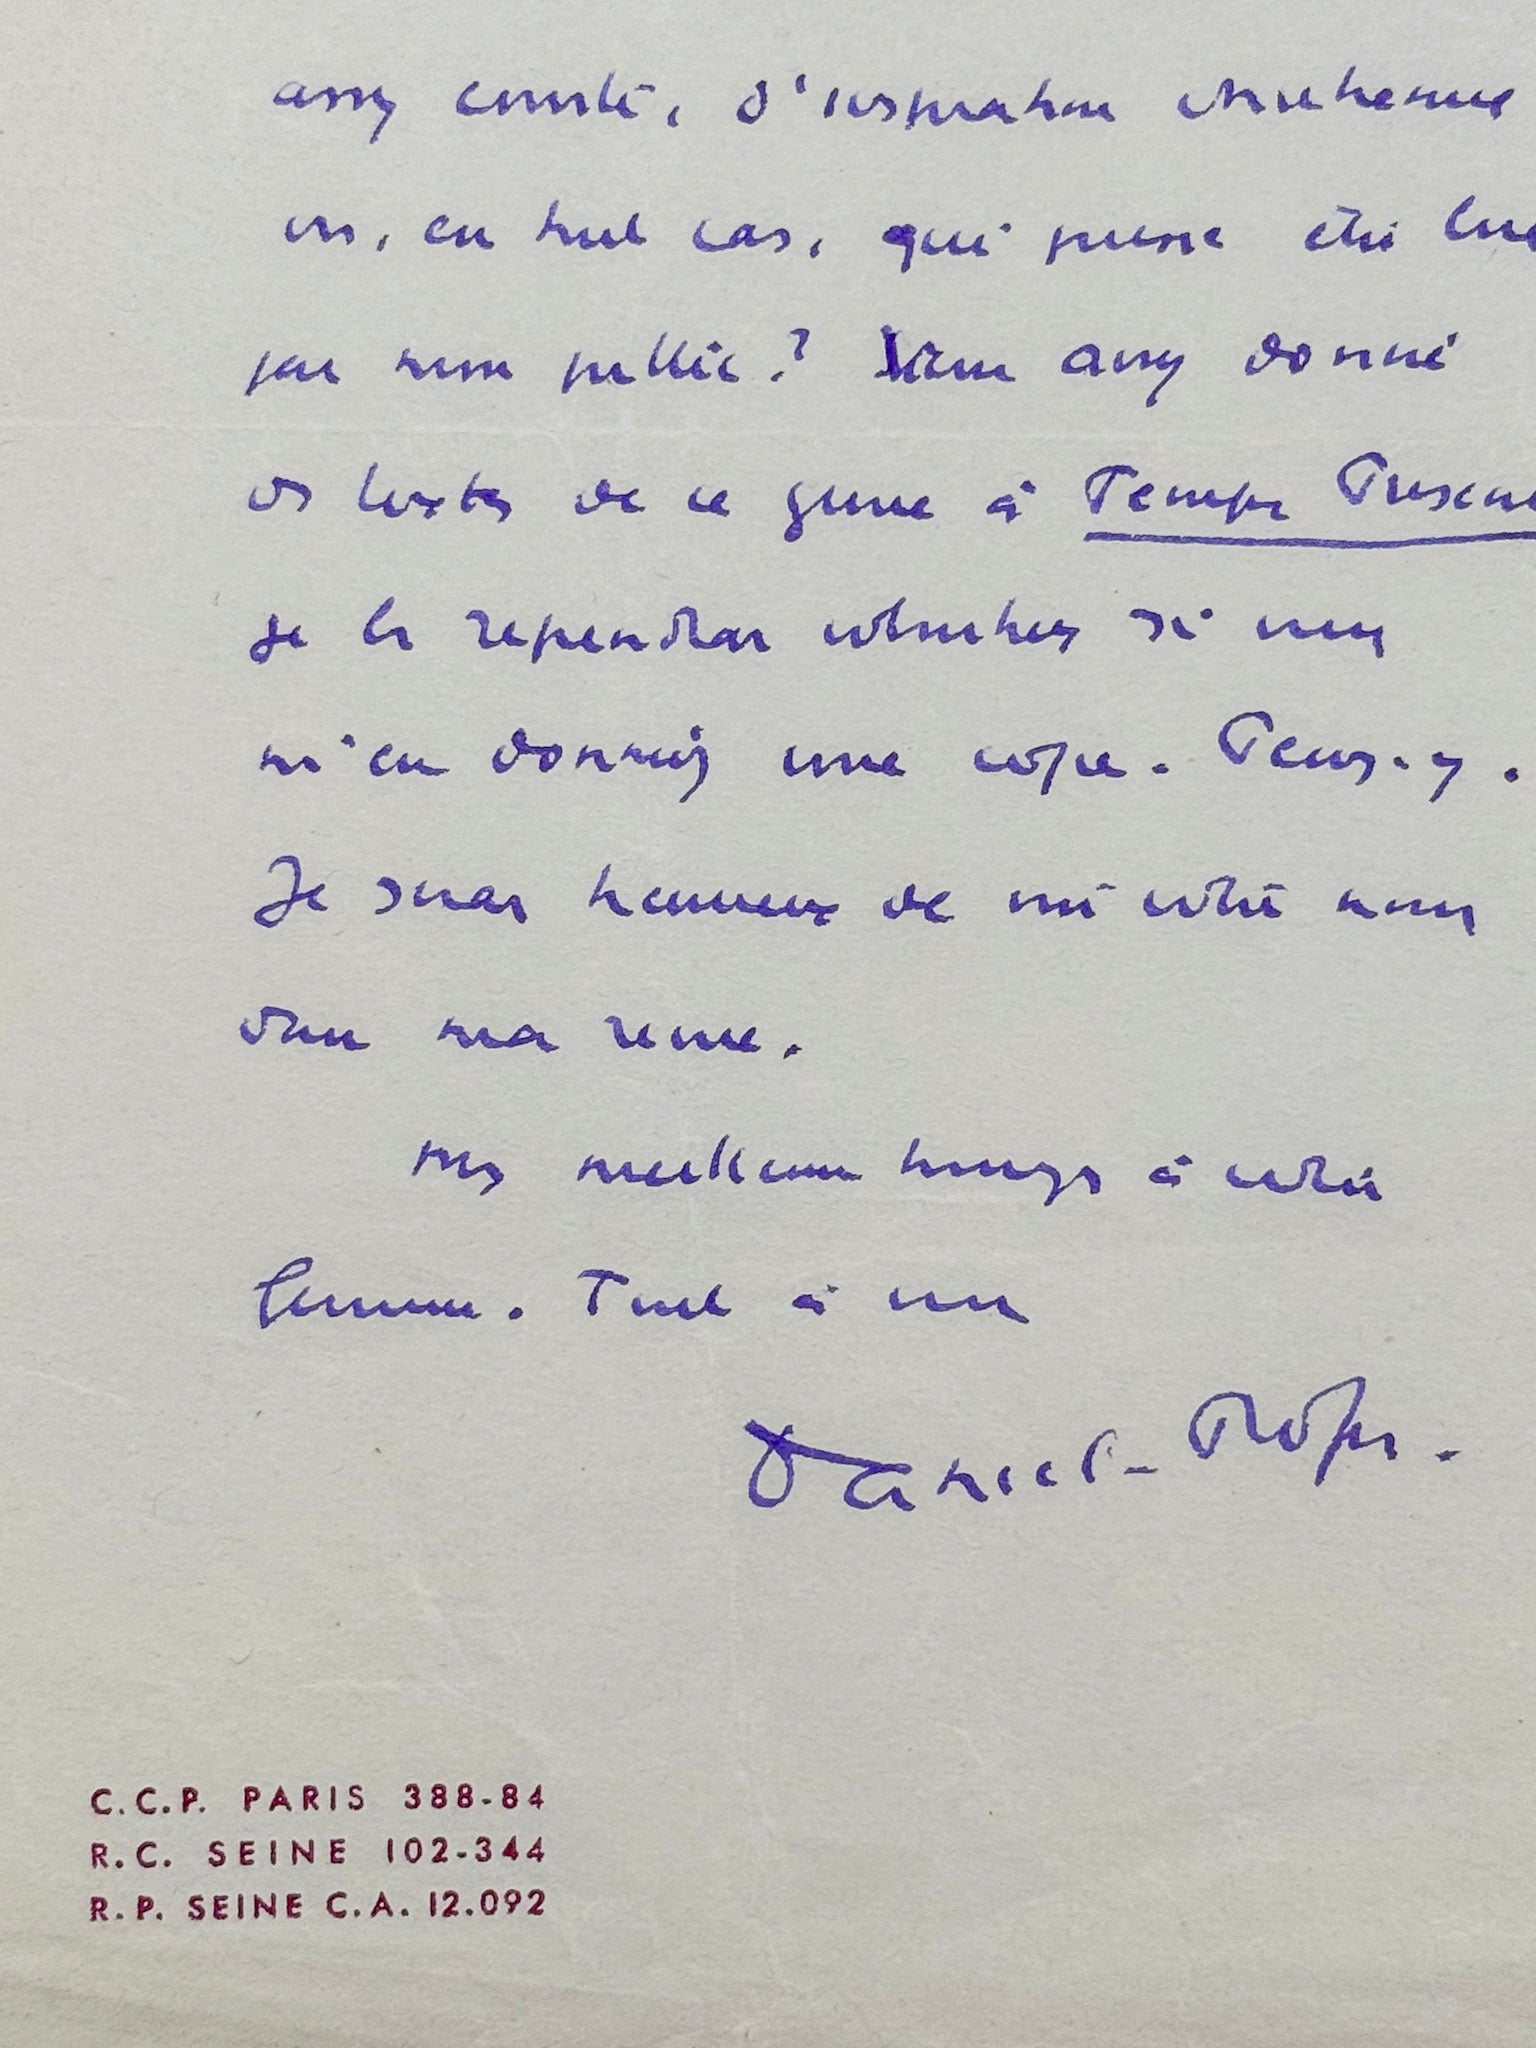 assez courte, d'inspiration chrétienne
ou, en tout cas, qui puisse être lue
par mon public ? Vous avez donné
des textes de ce genre à Temps Présent
je les reprendrai volontiers si vous
m'en donniez une copie. Pensez-y.
Je serais heureux de votre nom
dans ma revue.
Mes meilleurs hommages à votre
femme. Tout à vous
Daniel-Rops.
C.C.P. PARIS 388-84
R.C. SEINE 102-344
R.P. SEINE C.A. 12.092